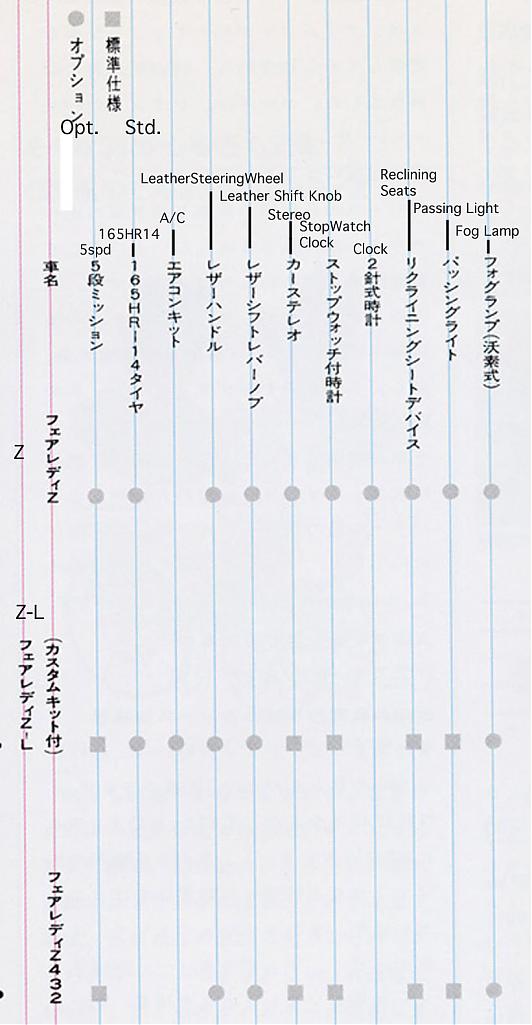 標準仕様
オプション
Opt. Std.
LeatherSteeringWheel
Leather Shift Knob
Reclining
Seats
Passing Light
A/C
Stereo
StopWatch
Clock
Fog Lamp
165HR14
5spd
Clock
車名
5段ミッション
165HR-14タイヤ
エアコンキット
レザーハンドル
レザーシフトレバーノブ
カーステレオ
ストップウォッチ付時計
2針式時計
リクライニングシートデバイス
パッシングライト
フォグランプ(沃素式)
Z
フェアレディZ
Z-L
フェアレディZ-L
(カスタムキット付)
フェアレディZ432